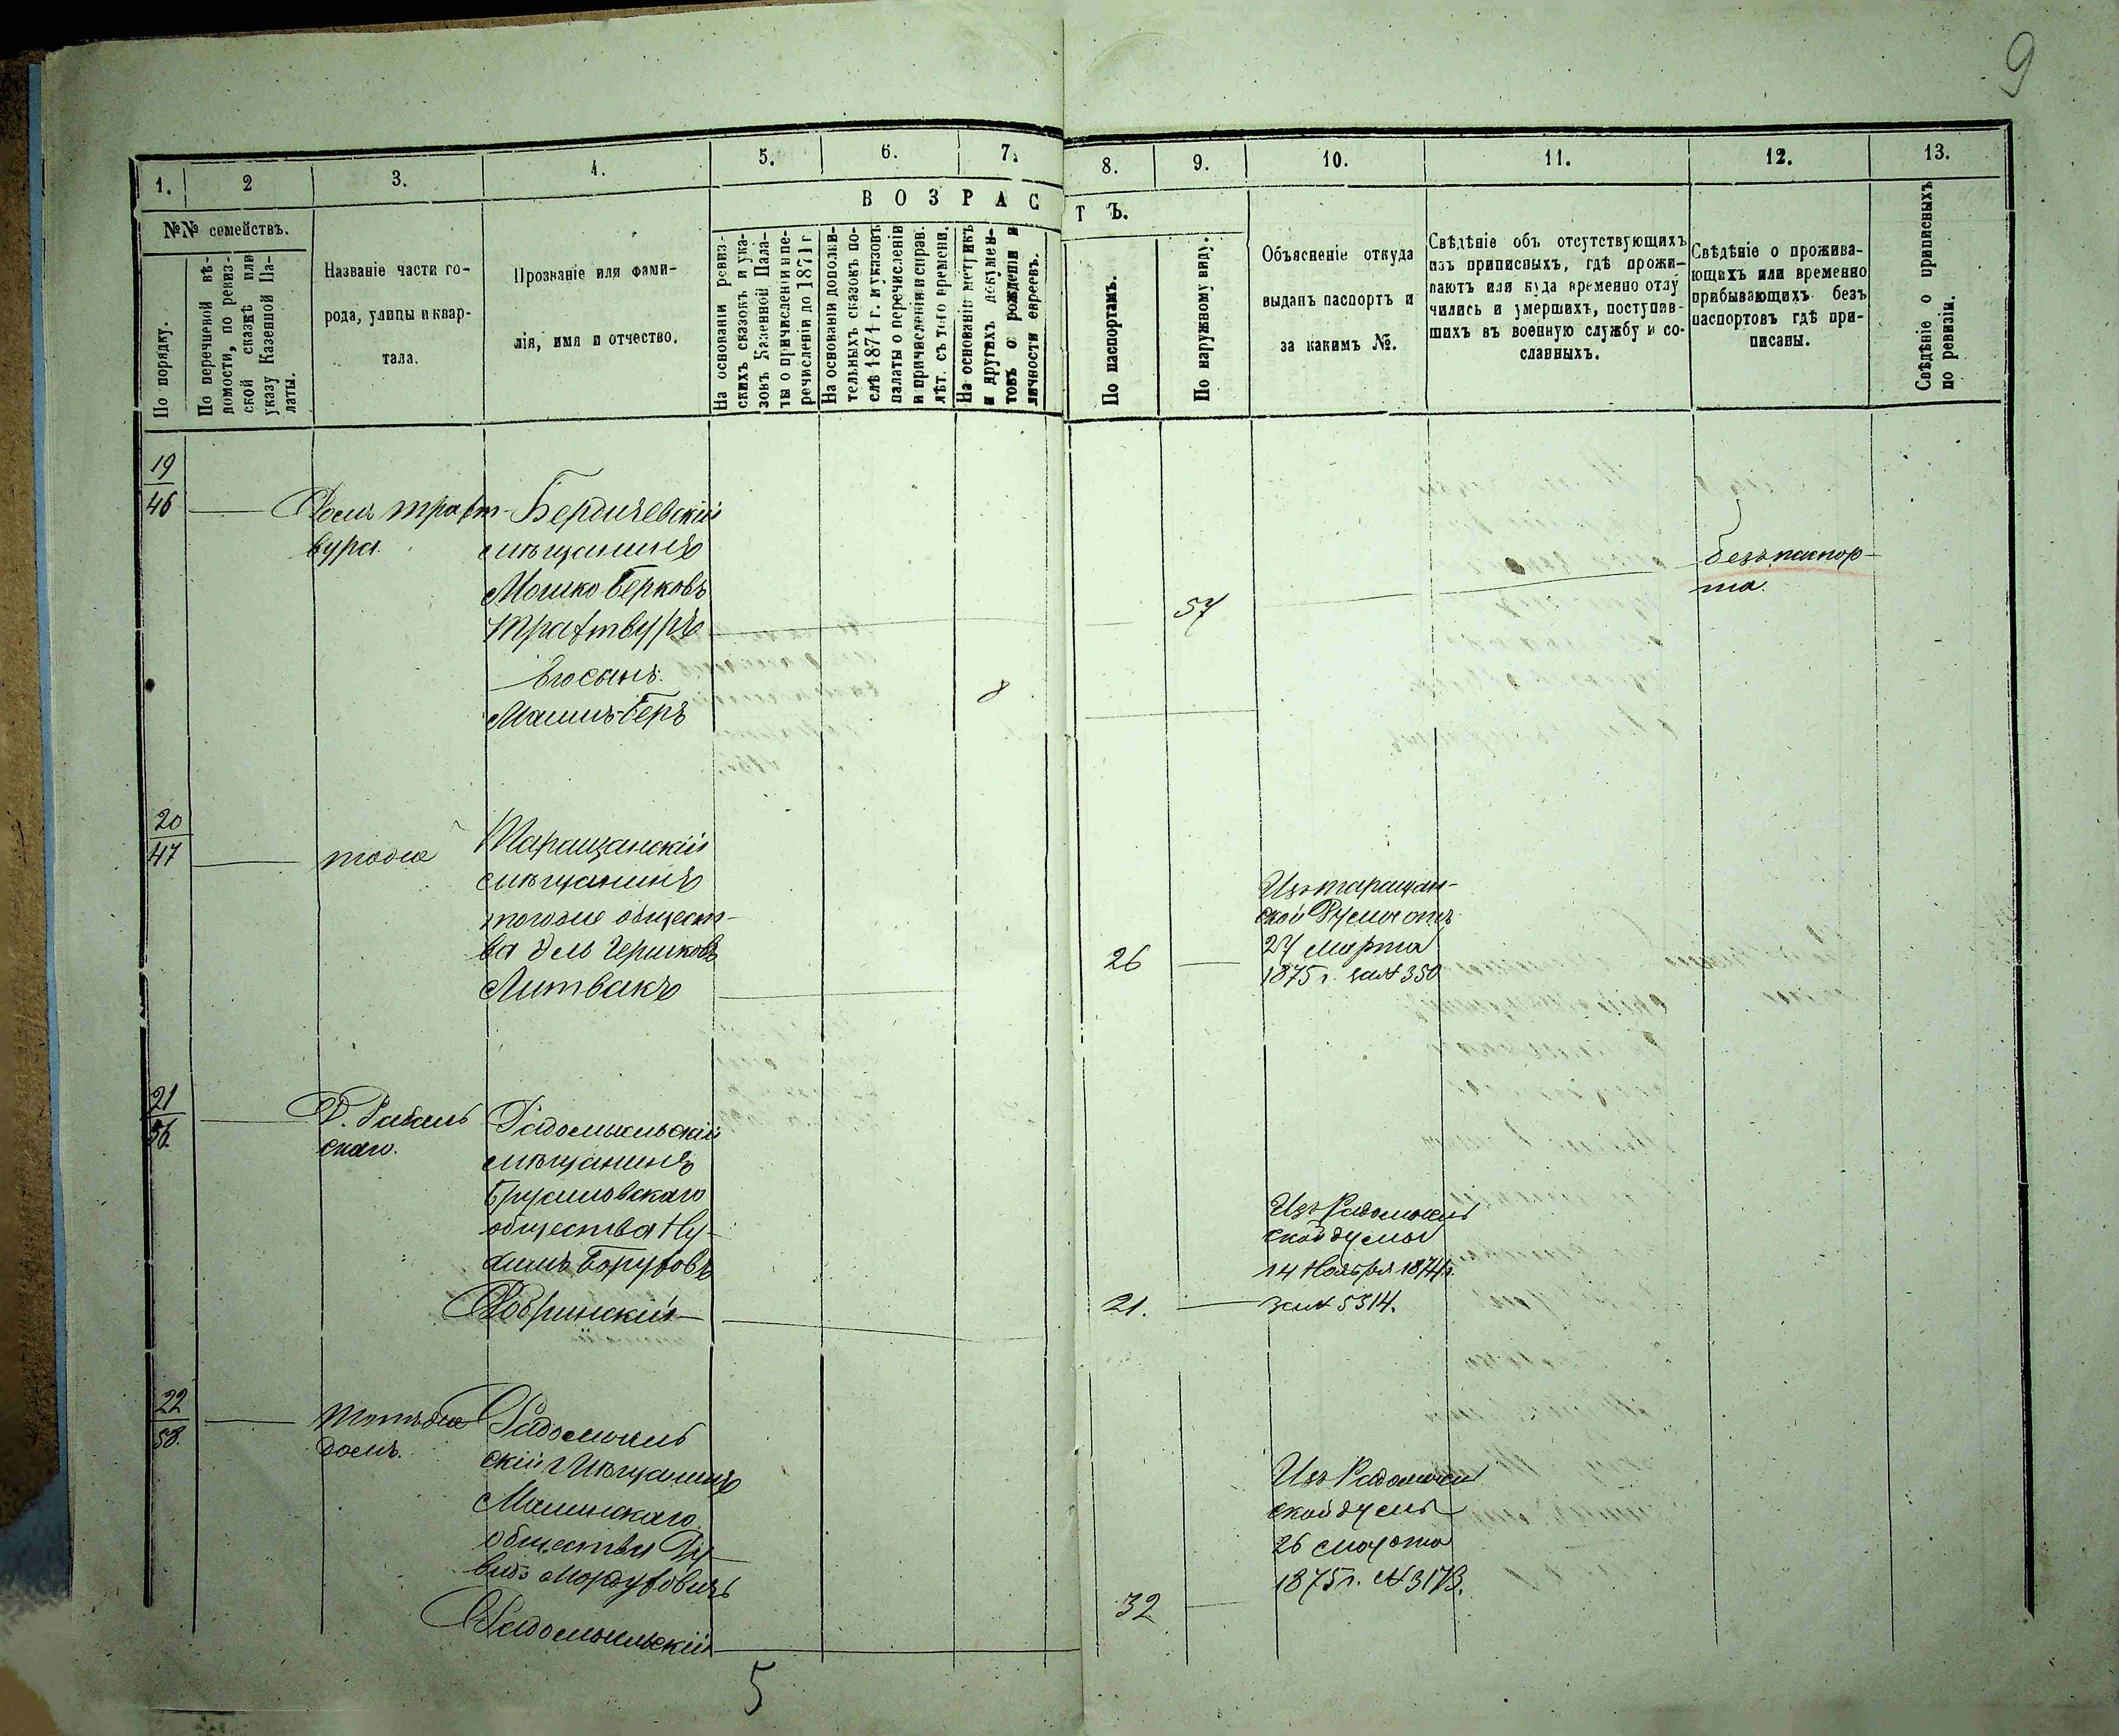 9
1.
2
3.
4.
5.
6.
7.
8.
9.
10.
11.
12.
13.
ВОЗРАСТЪ.
№№ семействъ.
По порядку.
По перечневой вѣ-
домости, по ревиз-
ской сказкѣ или
указу Казенной Па-
латы.
Названіе части го-
рода, улицы и квар-
тала.
Прозваніе или фами-
лія, имя и отчество.
На основаніи ревиз-
скихъ сказокъ и ука-
зовъ Казенной Пала-
ты о причисленіи и пе-
речисленіи до 1874 г.
На основаніи дополни-
тельныхъ сказокъ по-
слѣ 1874 г. и указовъ
палаты о перечисленіи
и причисленіи и справ.
лѣт. съ того времени.
На основаніи метрикъ
и другихъ докумен-
товъ о рожденіи и
личности евреевъ.
По паспортамъ.
По наружному виду.
Объясненіе откуда
выданъ паспортъ и
за какимъ №.
Свѣдѣніе объ отсутствующихъ
изъ приписныхъ, гдѣ прожи-
ваютъ или куда временно отлу
чились и умершихъ, поступив-
шихъ въ военную службу и со-
сланныхъ.
Свѣдѣніе о прожива-
ющихъ или временно
прибывающихъ безъ
паспортовъ гдѣ при-
писаны.
Свѣдѣніе о приписныхъ
по ревизіи.
19
46
Домъ Трахт-
вура.
Бердичевскій
мѣщанинъ
Мошко Берковъ
Трахтвуръ
57
безъ паспор-
та.
Его сынъ:
Беръ
8
20
47
тоже
Таращанскій
мѣщанинъ
тогоже общест-
ва Гершковъ
Литвакъ
26
Изъ Таращан-
ской Думы отъ
27 марта
1875 г. за № 350
21
56.
Д.
скаго.
Радомысльскій
мѣщанинъ
Брусиловскаго
общества Ну-
химъ Боруховъ
Добринскій
21.
Изъ Радомысль
ской думы
14 Ноября 1874 г.
за № 5314.
22
58.
Тотъ же
домъ.
Радомысль
скій Мѣщанинъ
Малинскаго
общества Ду-
видъ Мордуховичъ
Радомысльскій
32
Изъ Радомысль
ской думы
26 марта
1875 г. № 3173.
5